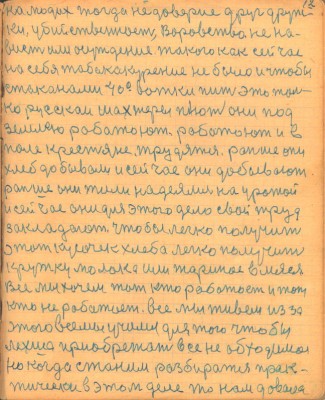 на людях тогда недоверие друг другу
ки, убийственот, воровства не на
висти или осуждения такого как сейчас
на себя табакакурение не было и чтобы
стаканами 40° вотки пит это тол
ко русскаи шахтеры пют они под
землею работают. работают и в
поле крестяне. трудятся. ранше они
хлеб добывали и сейчас они добывают
ранше они жили надеями на урожой
и сейчас они для этого дело свой труд
закладают чтобы легко получит
этот кусочек хлеба легко получит
крутку молока или таримое вмиося
Все мы хочем тот кто работает и тот
кто не работает. все мы живем из за
этого всему учимся для того чтобы
лехше приобретат все не обходимое
но когда станим розбиратя прак-
тически в этом деле то нам довод